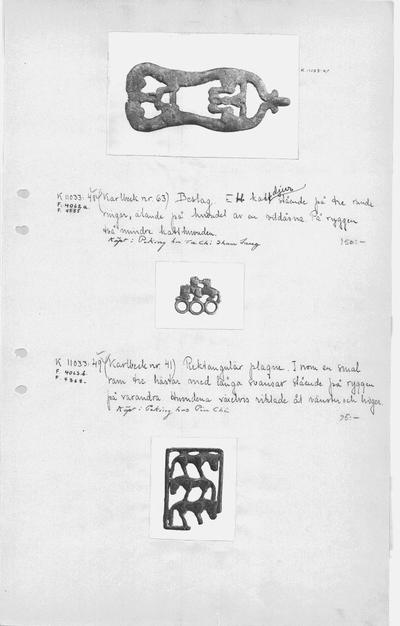 K 11033:47
K 11033:48 (Karlbeck nr. 63) Beslag. Ett kattdjur stående på tre runda
F. 4062a
ringar, ätande på huvudet av en vildåsna. På ryggen
tre mindre katthuvuden.
Köpt i Peking hos Ta Chi Shan Fang
150:-
K 11033:49 (Karlbeck nr. 41) Rektangulär plaque. Inom en smal
F. 4063a
ram tre hästar med långa svansar stående på ryggen
på varandra. Huvudena växelvis riktade åt vänster och höger.
Köpt i Peking hos Pin Chi
95:-